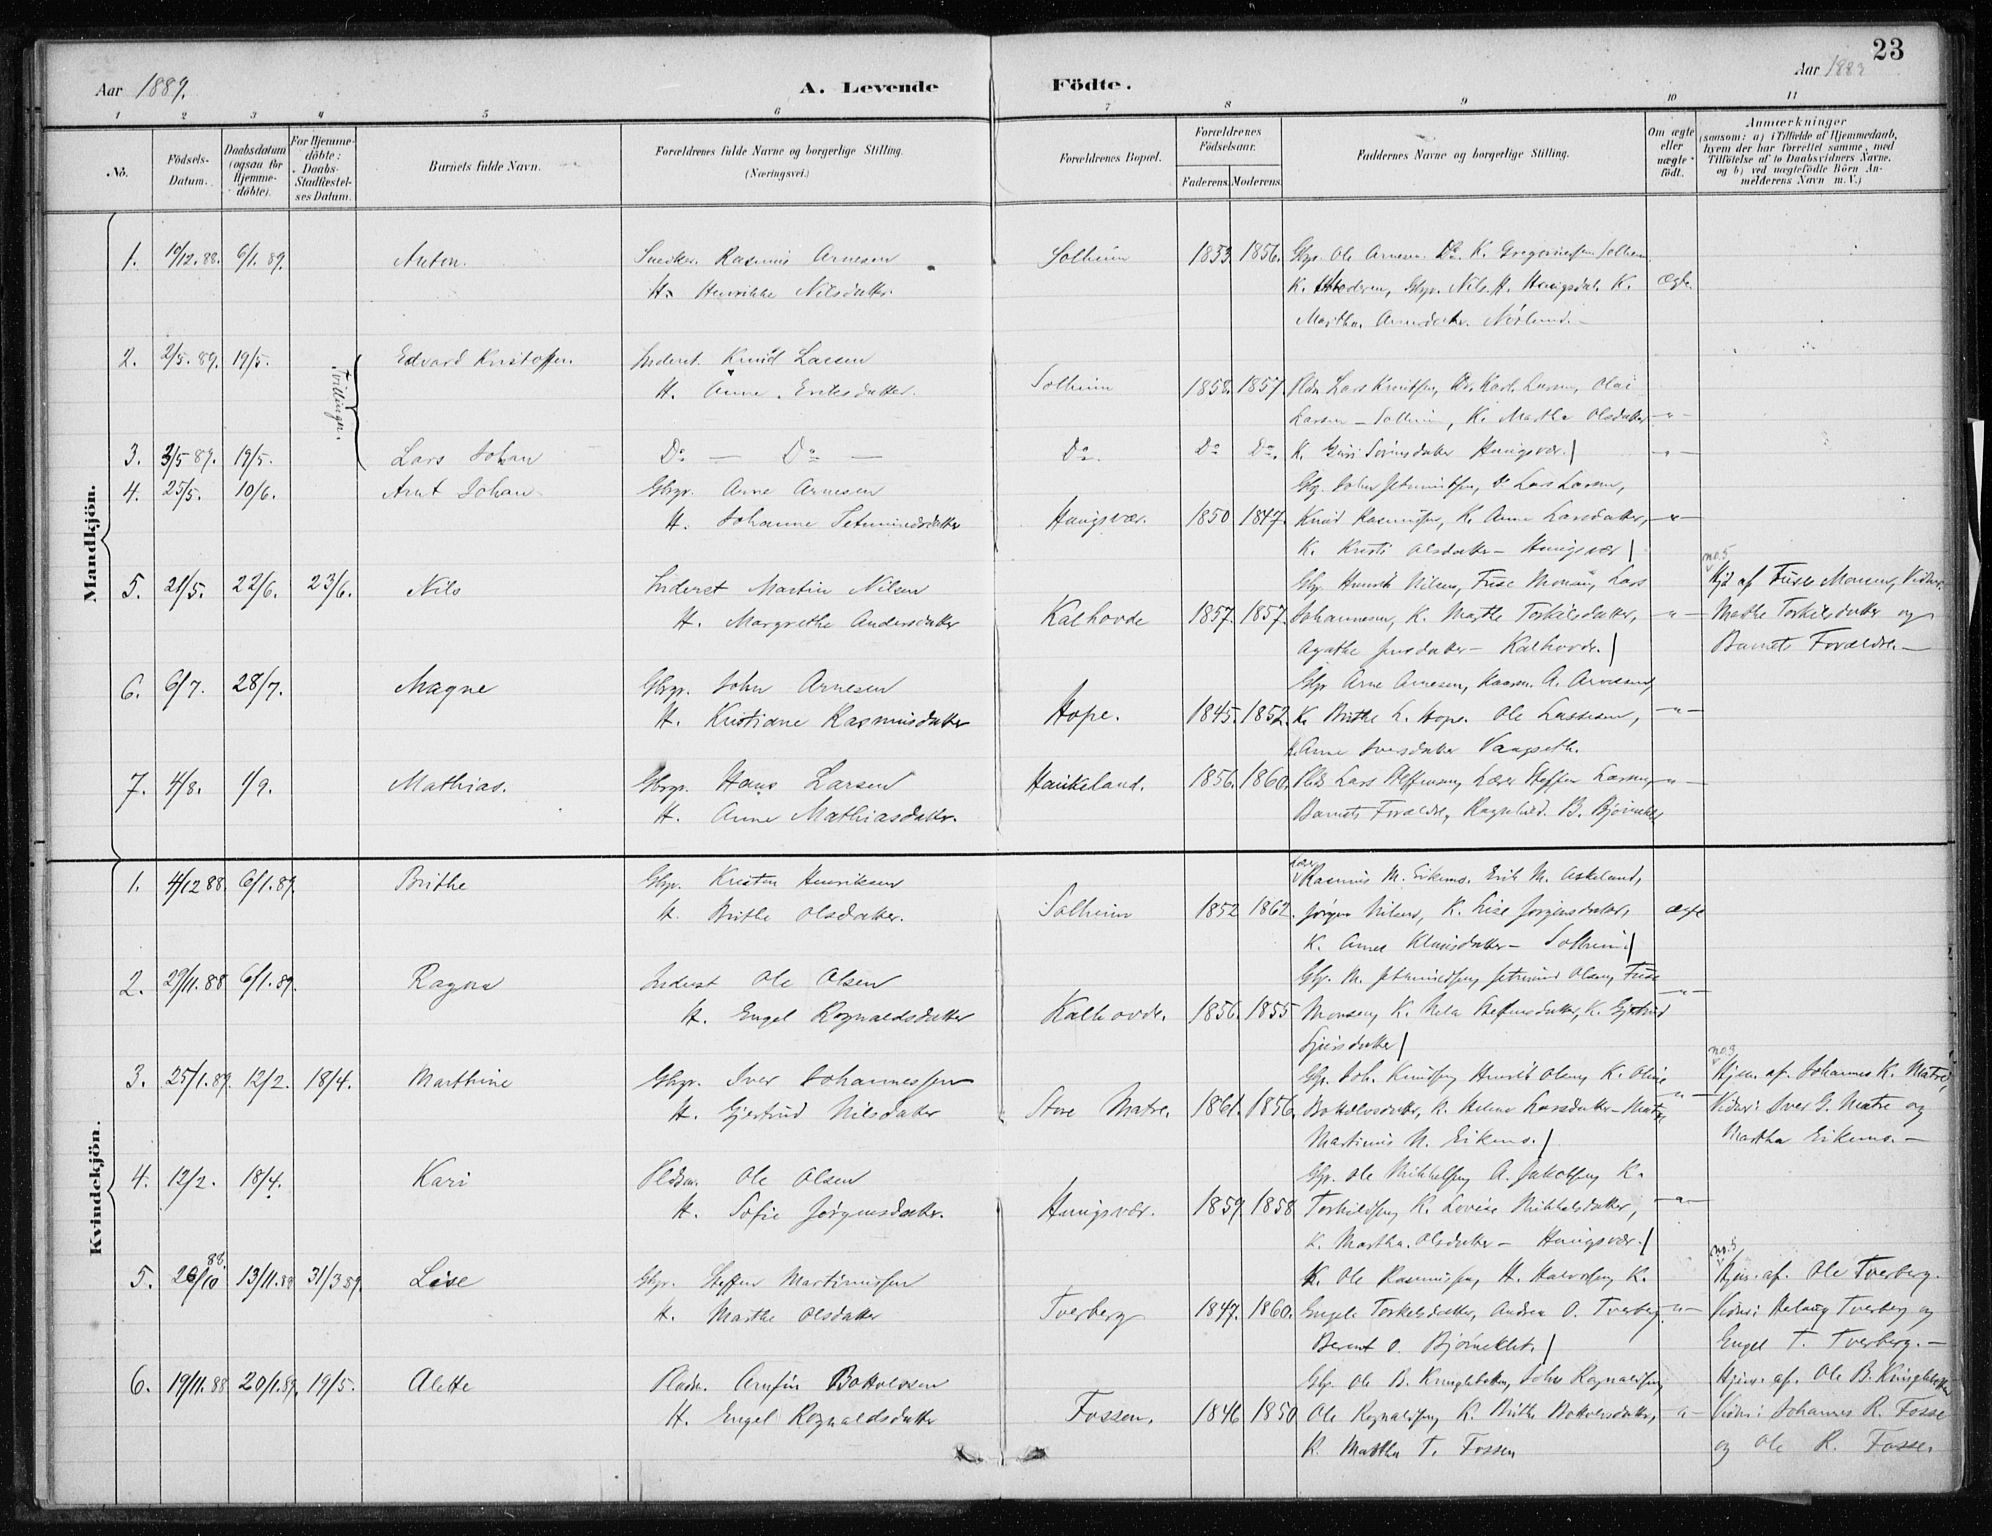 23
Aar 1889.
A. Levende Födte.
Aar 1889
1 2 3 4 5 6 7 8 9 10 11
No.
Födsels-Datum.
Daabsdatum (ogsaa for Hjemme-döbte).
For Hjemme-döbte: Daabs-Stadfæstel-ses Datum.
Barnets fulde Navn.
Forældrenes fulde Navne og borgerlige Stilling. (Næringsvei.)
Forældrenes Bopæl.
Forældrenes Födselsaar.
Faderens. Moderens.
Faddernes Navne og borgerlige Stilling.
Om ægte eller uægte födt.
Anmærkninger
(saasom: a) i Tilfælde af Hjemmedaab, hvem der har forrettet samme, med Tilföielse af to Daabsvidners Navne, og b) ved uægtefödte Börn An-melderens Navn m. V.)
Mandkjön.
1. 19/12.88. 6/1.89. Anton. Snedker Rasmus Arnesen Solheim 1853. 1856. Gbgr. Ole Arnesen Do. K. Gregoriussen Solheim
H. Henrikke Nilsdatter. K. Nils H. Haugsdal. K. Ægte.
Martha
2. 2/5.89. 19/5. Edvard Kristoffer. Inderst Knud Larsen
Tvillinger.
H. Anne Eriksdatter. Solheim 1858. 1857. Lars Knutsen, Karl Larsen, Olai
Larsen - Solheim, K. Marthe Olsdatter -"-
3. 3/5 89. 19/5. Lars Johan Do - Do - Do. Do Do. K. Guri Haugsvær.
4. 25/5. 10/6. Arnt Johan Gbgr. Arne Arnesen Lars Larsen,
H. Johanne Haugsvær. 1850 1847. Knud Rasmussen, K. Anna Larsdatter, -"-
K. Kristi Olsdatter - Haugsvær
5. 21/5. 22/6. 23/6. Nils Inderst Martin Nilsen Gbgr. Henrik Nilsen, Monsen, Lars no. 5 Hjd af Monsen, Vidner:
H. Margrethe Andersdatter Kalhovde 1857. 1857. Johannesen, K. Marthe Torkilsdatter, -"- Marthe Torkilsdatter og
Agathe Jensdatter - Kalhovde. Barnets Forældre. -
6. 6/7. 28/7. Magne Gbgr. John Arnesen Gbgr Arne Arnesen, Rasm. A. Arnesen,
H. Kristiane Rasmusdatter Hope. 1845. 1852. K. Brithe L. Hope. Ole Lassesen, -"-
K. Anne Iversdatter Vangseth.
7. 4/8. 1/9. Mathias. Gbgr. Hans Larsen Haukeland. 1856. 1860. Lars Steffensen, Lærer Steffen Larsen, -"-
H. Anne Mathiasdatter. Barnets Forældre, Ragnhild B.
Kvindekjön.
1. 4/12 88. 6/1.89. Brithe Gbgr. Kristen Henriksen Lærer Rasmus M. Eikemo. Erik M. Askeland,
H. Brithe Olsdatter. Solheim 1852 1862. Jørgen Nilsen, K. Lise Jørgensdatter, ægte
K. Anne Klausdatter - Solheim.
2. 29/11.88 6/1.89. Ragna Inderst Ole Olsen Gbgr. M. Olsen,
H. Engel Rognaldsdatter Kalhovde. 1856. 1855 Monsen, K. Nela K. Gjertrud -"-
3. 25/1.89. 12/2. 18/4. Marthine Gbgr. Iver Johannessen Gbgr. Joh. Knutsen, Henrik Olsen, K. Oline no. 3 Hjem. af. Johannes K. Matre,
H. Gjertrud Nilsdatter Store Matre. 1861. 1856. K. Helene Larsdatter - Matre, -"- Vidner: Iver G. Matre og
Martinus N. Eikemo. Martha Eikemo. -
4. 12/2. 18/4. Kari Pladsm. Ole Olsen Gbgr. Ole Mikkelsen, A. Jakobsen, K.
H. Sofie Jørgensdatter. Haugsvær. 1859. 1858 K. Lovise Mikkelsdatter, -"-
K. Martha Olsdatter - Haugsvær.
5. 26/10 88. 13/11.88 31/3 89. Lise Gbgr. Steffen Martinussen K. Ole Rasmussen, H. Halvorsen, K. no. 5 Hjem. af. Ole Tverberg.
H. Marthe Olsdatter Tverberg 1847. 1860. Engele Torkelsdatter, Andrea O. Tverberg -"- Vidner: Tverberg og
Berent O. Engel T. Tverberg. -
6. 19/11.88 20/1.89. 19/5. Alette Pladsm. Arnfin Bottolvsen Gbgr. Ole B. John Rognaldsen, Hjem. af. Ole B.
H. Engel Rognaldsdatter Fossen. 1846 1850 Ole Rognaldsen, K. Brithe Bottolvsdatter, -"- Vidner: Johannes R. Fosse
K. Martha T. Fossen og Ole R. Fosse.